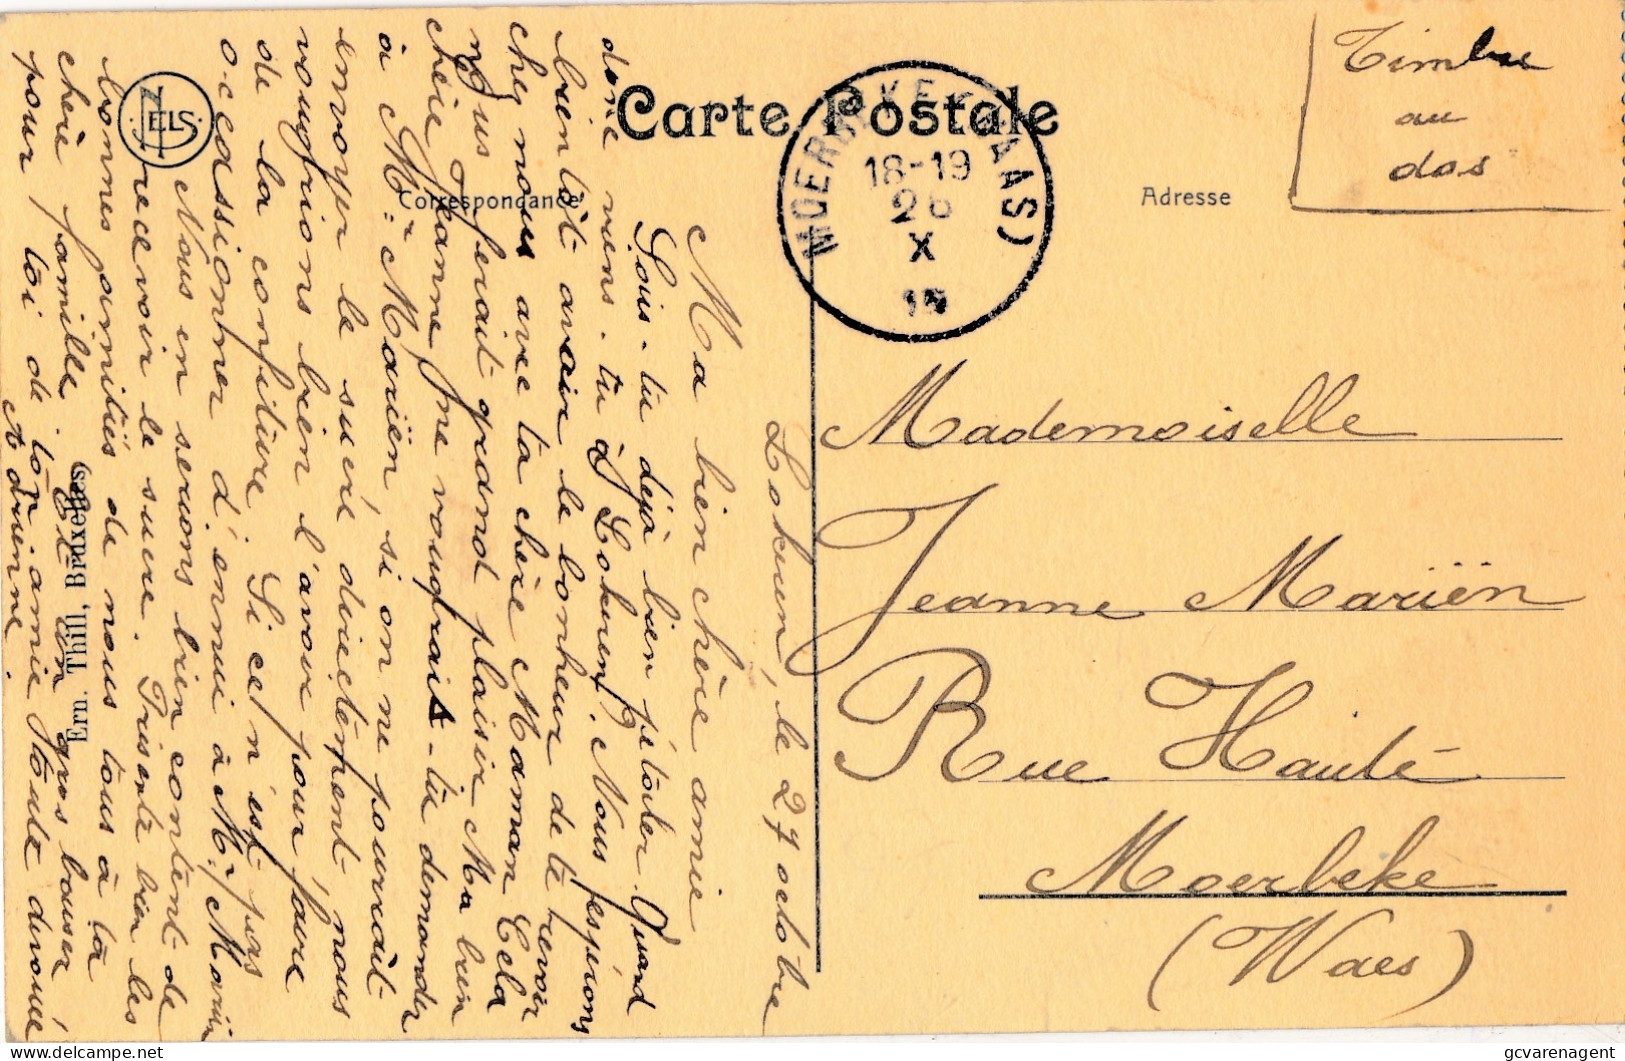 Carte Postale
Correspondance
Adresse
Timbre
au
dos
MOERBEKE (WAAS)
18-19
26
X
Mademoiselle
Jeanne Mariën
Rue Haute
Moerbeke
(Waes)
Lokeren, le 27 octobre
Ma bien chère amie
Louis-tu déjà bien pétoler. Quand
donc viens-tu à Lokeren? Nous espérons
bientôt avoir le bonheur de te revoir
chez nous avec ta chère Maman Cela
nous ferait grand plaisir. Ma bien
chère Jeanne ne voudrais-tu demander
à Mr Mariën, si on ne pourrait
envoyer le sucré directement nous
voudrions bien l'avoir pour faire
de la confiture. Si ce n'est pas
occassionner d'ennui à Mr Mariën
Nous en serions bien content de
recevoir le sucre. Présente bien les
bonnes amitiés de nous tous à ta
chère famille. Et un gros baiser
pour toi de ton amie toute dévouée
Adrienne.
Ern. Thill, Bruxelles
NELS
gcvarenagent